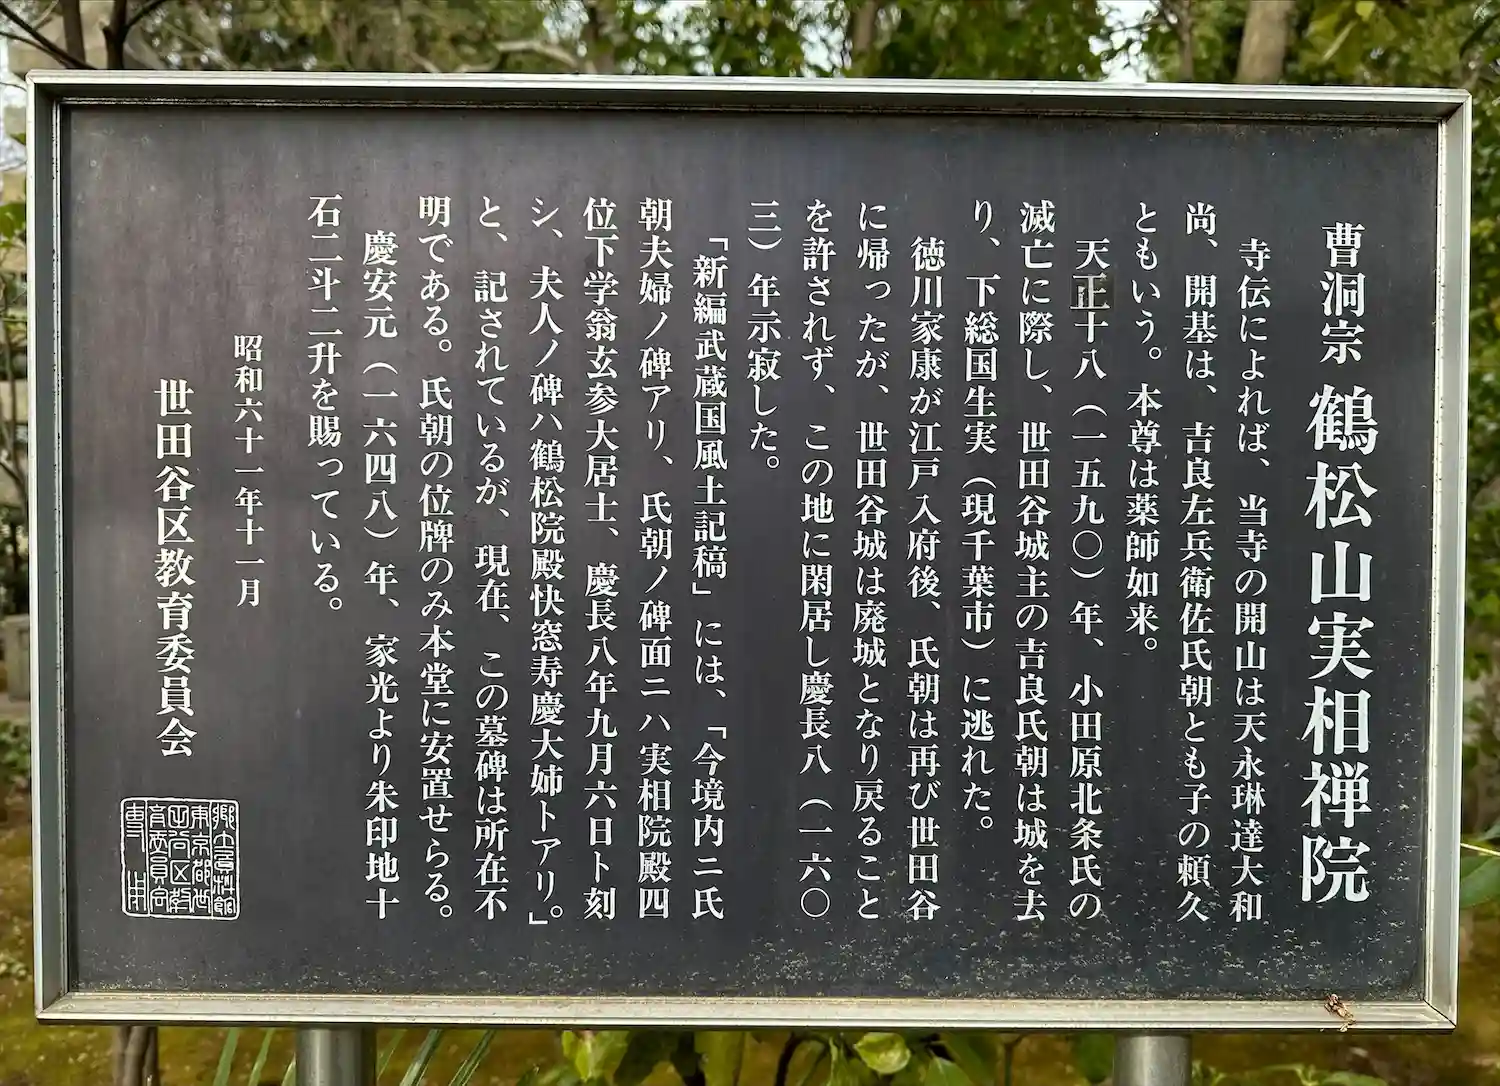 曹洞宗 鶴松山実相禅院
寺伝によれば、当寺の開山は天永琳達大和
尚、開基は、吉良左兵衛佐氏朝とも子の頼久
ともいう。本尊は薬師如来。
天正十八（一五九〇）年、小田原北条氏の
滅亡に際し、世田谷城主の吉良氏朝は城を去
り、下総国生実（現千葉市）に逃れた。
徳川家康が江戸入府後、氏朝は再び世田谷
に帰ったが、世田谷城は廃城となり戻ること
を許されず、この地に閑居し慶長八（一六〇
三）年示寂した。
「新編武蔵国風土記稿」には、「今境内ニ氏
朝夫婦ノ碑アリ、氏朝ノ碑面ニハ実相院殿四
位下学翁玄参大居士、慶長八年九月六日ト刻
シ、夫人ノ碑ハ鶴松院殿快窓寿慶大姉トアリ。」
と、記されているが、現在、この墓碑は所在不
明である。氏朝の位牌のみ本堂に安置せらる。
慶安元（一六四八）年、家光より朱印地十
石二斗二升を賜っている。
昭和六十一年十一月
世田谷区教育委員会